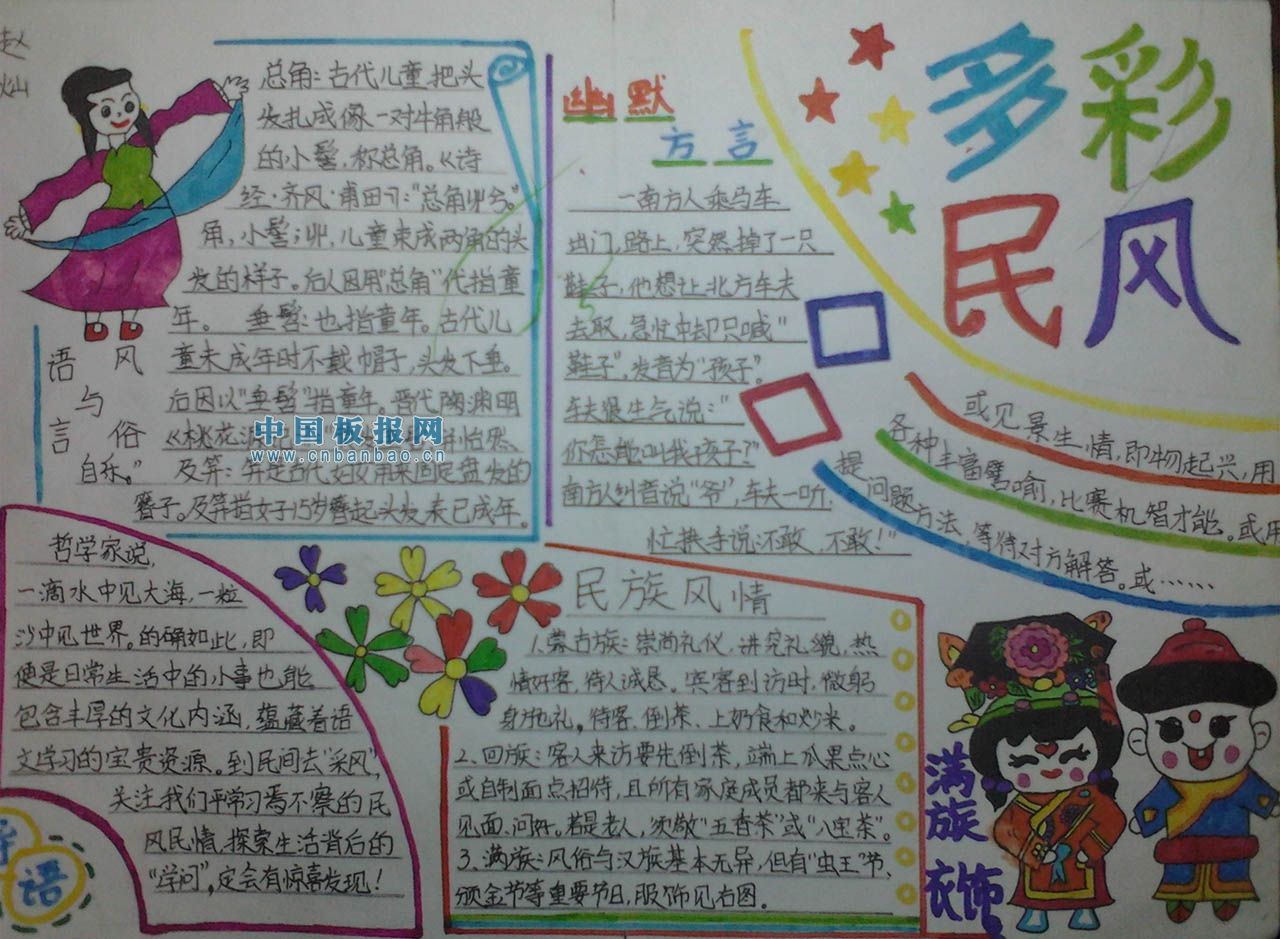 赵
灿
总角：古代儿童把头
发扎成像一对牛角般
的小髻，称总角。《诗
经·齐风·甫田》："总角丱兮。"
角，小髻；丱，儿童束成两角的头
发的样子。后人因用"总角"代指童
年。 垂髫：也指童年。古代儿
童未成年时不戴帽子，头发下垂。
后因以"垂髫"指童年。晋代陶渊明
《桃花源 怡然
自乐。" 及笄：笄是古代妇女用来固定盘发的
簪子。及笄指女子15岁簪起头发表已成年。
语言与风俗
中国板报网
www.cnbanbao.cn
幽默
方言
一南方人乘马车
出门，路上，突然掉了一只
鞋子，他想让北方车夫
去取，急忙中却只喊"
鞋子"，发音为"孩子"。
车夫很生气说："
你怎能叫我孩子？"
南方人纠音说"爷"，车夫一听，
忙拱手说：不敢，不敢！"
多彩
民风
或见景生情，即物起兴，用
各种丰富譬喻，比赛机智才能。或用
提问题方法，等待对方解答。或……
哲学家说，
一滴水中见大海，一粒
沙中见世界。的确如此，即
便是日常生活中的小事也能
包含丰厚的文化内涵，蕴藏着语
文学习的宝贵资源。到民间去"采风"，
关注我们平学习焉不察的民
风民情，探索生活背后的
"学问"，定会有惊喜发现！
语
民族风情
1、蒙古族：崇尚礼仪，讲究礼貌，热
情好客，待人诚恳。宾客到访时，微躬
身施礼。待客，倒茶、上奶食和炒米。
2、回族：客人来访要先倒茶，端上瓜果点心
或自制面点招待，且所有家庭成员都来与客人
见面、问好。若是老人，须敬"五香茶"或"八宝茶"。
3、满族：风俗与汉族基本无异，但有"虫王"节、
颁金节等重要节日，服饰见右图。
满族衣饰